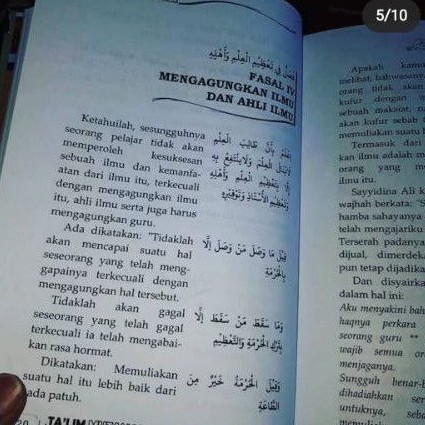 5/10
فصل في تعظيم العلم وأهله
FASAL IV
MENGAGUNGKAN ILMU
DAN AHLI ILMU
Ketahuilah, sesungguhnya
seorang pelajar tidak akan
memperoleh kesuksesan
sebuah ilmu dan kemanfa-
atan dari ilmu itu, terkecuali
dengan mengagungkan ilmu
itu, ahli ilmu serta juga harus
mengagungkan guru.
اعلم بأن طالب العلم
لا ينال العلم ولا ينتفع به
إلا بتعظيم العلم وأهله
وتعظيم الأستاذ وتوقيره
Ada dikatakan: "Tidaklah
akan mencapai suatu hal
seseorang yang telah meng-
gapainya terkecuali dengan
mengagungkan hal tersebut.
قيل ما وصل من وصل إلا
بالحرمة
Tidaklah akan gagal
seseorang yang telah gagal
terkecuali ia telah mengabai-
kan rasa hormat.
وما سقط من سقط إلا
بترك الحرمة والتعظيم
Dikatakan: Memuliakan
suatu hal itu lebih baik dari
pada patuh.
وقيل الحرمة خير من
الطاعة
20
TA'LIM
Apakah kamu
melihat, bahwasany
orang tidak akan
kufur dengan
sebuah maksiat,
akan kufur sebab
memuliakan suatu
Termasuk dari
kan ilmu adalah m
orang yang m
ilmu itu.
Sayyidina Ali k
wajhah berkata: "S
hamba sahayanya
telah mengajariku
Terserah padanya
dijual, dimerdek
pun tetap dijadika
Dan disyairka
dalam hal ini:
Aku meyakini bah
haqnya perkara
seorang guru **
wajib semua or
menjaganya.
Sungguh benar-b
dihadiahkan ser
untuknya, seba